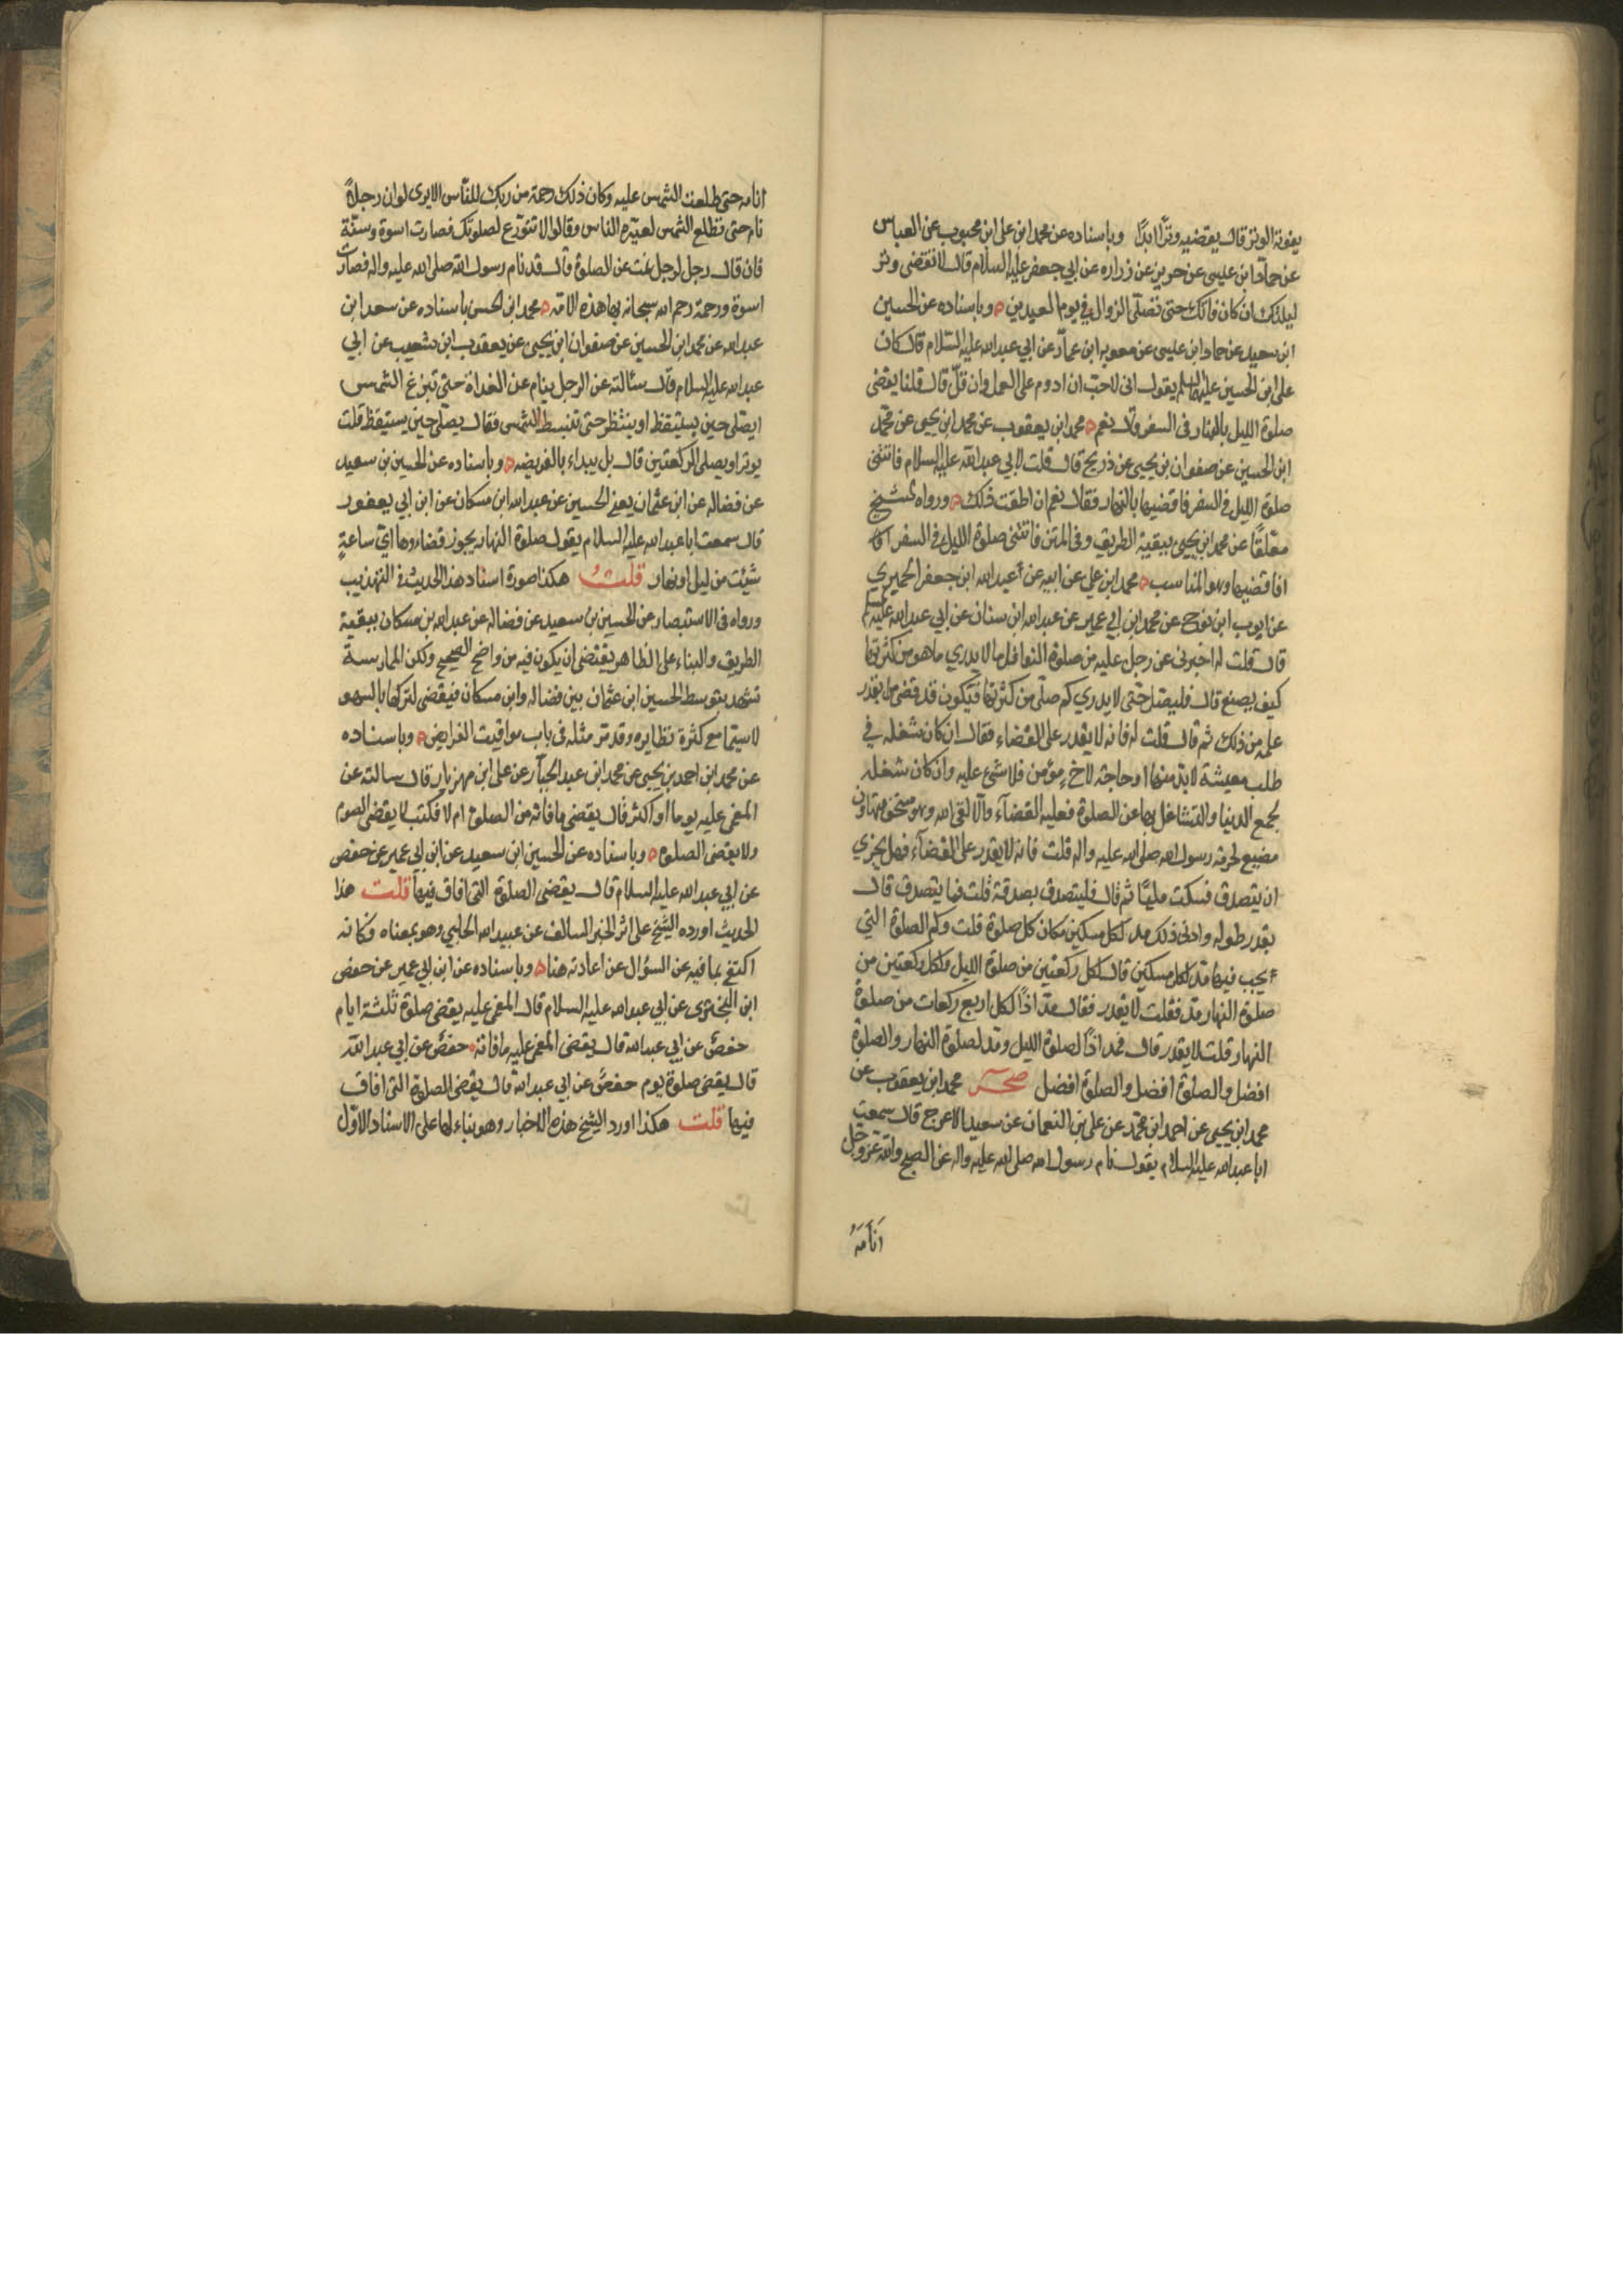 يفوته الوتر قال يقضيه وترا ابدا وباسناده عن محمد ابن على ابن محبوب عن العباس
عن حماد ابن عيسى عن حريز عن زراره عن ابي جعفر عليه السلام قال لا تقضى وتر
ليلتك ان كان فاتك حتى تصلى الزوال في يوم العيدين وباسناده عن الحسين
ابن سعيد عن حماد ابن عيسى عن معويه ابن عمار عن ابي عبد الله عليه السلام قال كان
على ابن الحسين عليهما السلم يقول انى لاحب ان ادوم على العمل وان قل قال قلنا يقضى
صلوة الليل بالنهار فى السفر قال نعم محمد ابن يعقوب عن محمد ابن يحيى عن محمد
ابن الحسين عن صفوان بن يحيى عن ذريح قال قلت لابي عبد الله عليه السلام فاتتنى
صلوة الليل فى السفر فاقضيها بالنهار فقال نعم ان اطقت ذلك ورواه الشيخ
معلقا عن محمد ابن يحيى ببقية الطريق وفى المتن فاتتنى صلوة الليل فى السفر
افاقضيها وهو المناسب محمد ابن علي عن ابيه عن عبد الله ابن جعفر الحميري
عن ايوب ابن نوح عن محمد ابن ابي عمير عن عبد الله ابن سنان عن ابي عبد الله عليه السلم
قال قلت له اخبرنى عن رجل عليه من صلوة النوافل ما لا يدري ما هو من كثرتها
كيف يصنع قال فليصل حتى لا يدري كم صلى من كثرتها فيكون قد قضى بقدر
علمه من ذلك ثم قال قلت له فانه لا يقدر على القضاء فقال ان كان شغله في
طلب معيشة لا بد منها او حاجة لاخ مؤمن فلا شئ عليه وان كان شغله
بجمع الدنيا والتشاغل بها عن الصلوة فعليه القضآء والا لقى الله وهو مستخف متهاون
مضيع لحرمة رسول الله صلى الله عليه واله قلت فانه لا يقدر على القضآء فهل يجزي
ان يتصدق فسكت مليا ثم قال فليتصدق بصدقة قلت فما يتصدق قال
بقدر طوله وادنى ذلك مد لكل مسكين مكان كل صلوة قلت وكم الصلوة التي
يجب فيها مد لكل مسكين قال لكل ركعتين من صلوة الليل ولكل ركعتين من
صلوة النهار مد فقلت لا يقدر فقال مد اذا لكل اربع ركعات من صلوة
النهار قلت لا يقدر قال فمد اذا لصلوة الليل ومد لصلوة النهار والصلوة
افضل والصلوة افضل والصلوة افضل صحر محمد ابن يعقوب عن
محمد ابن يحيى عن احمد ابن محمد عن على بن النعمان عن سعيد الاعرج قال سمعت
ابا عبد الله عليه السلام يقول نام رسول الله صلى الله عليه واله عن الصبح والله عز وجل
انامه
انامه حتى طلعت الشمس عليه وكان ذلك رحمة من ربك للناس الا يرى لو ان رجلا
نام حتى تطلع الشمس لعيره الناس وقالوا لا تتورع لصلوتك فصارت اسوة وسنة
فان قال رجل لرجل نمت عن الصلوة قال قد نام رسول الله صلى الله عليه واله فصارت
اسوة ورحمة رحم الله سبحانه بها هذه الامة محمد ابن الحسن باسناده عن سعد ابن
عبد الله عن محمد ابن الحسين عن صفوان ابن يحيى عن يعقوب ابن شعيب عن ابي
عبد الله عليه السلام قال سئالته عن الرجل ينام عن الغداة حتى تبزغ الشمس
ايصلى حين يستيقظ او ينتظر حتى تنبسط الشمس فقال يصلى حين يستيقظ قلت
يوتر او يصلى الركعتين قال بل يبداء بالفريضه وباسناده عن الحسين بن سعيد
عن فضاله عن ابن عثمان يعنى الحسين عن عبد الله ابن مسكان عن ابن ابي يعفور
قال سمعت ابا عبد الله عليه السلام يقول صلوة النهار يجوز قضاءوها اي ساعة
شئت من ليل او نهار قلت هكذا صورة اسناد هذا الحديث فى التهذيب
ورواه فى الاستبصار عن الحسين بن سعيد عن فضاله عن عبد الله بن مسكان ببقية
الطريق والبناء على الظاهر يقتضى ان يكون فيه من واضح الصحيح ولكن الممارسة
تشهد بتوسط الحسين ابن عثمان بين فضاله وابن مسكان فيقضى لتركها بالسهو
لا سيما مع كثرة نظايره وقد مر مثله فى باب مواقيت الفرايض وباسناده
عن محمد ابن احمد بن يحيى عن محمد ابن عبد الجبار عن على ابن مهزيار قال سالته عن
المغمى عليه يوما او اكثر قال يقضى ما فاته من الصلوة ام لا فكتب لا يقضى الصوم
ولا يقضى الصلوة وباسناده عن الحسين ابن سعيد عن ابن ابي عمير عن حفص
عن ابي عبد الله عليه السلام قال يقضى الصلوة التى افاق فيها قلت هذا
الحديث اورده الشيخ على اثر الخبر السالف عن عبيد الله الحلبي وهو بمعناه وكانه
اكتفى بما فيه عن السؤال عن اعادته هنا وباسناده عن ابن ابي عمير عن حفص
ابن البخترى عن ابي عبد الله عليه السلام قال المغمى عليه يقضى صلوة ثلثة ايام
حفص عن ابي عبد الله قال يقضى المغمى عليه ما فاته حفص عن ابي عبد الله
قال يقضى صلوة يوم حفص عن ابي عبد الله قال يقضى الصلوة التى افاق
فيها قلت هكذا اورد الشيخ هذه الاخبار وهو بناء لها على الاسناد الاول